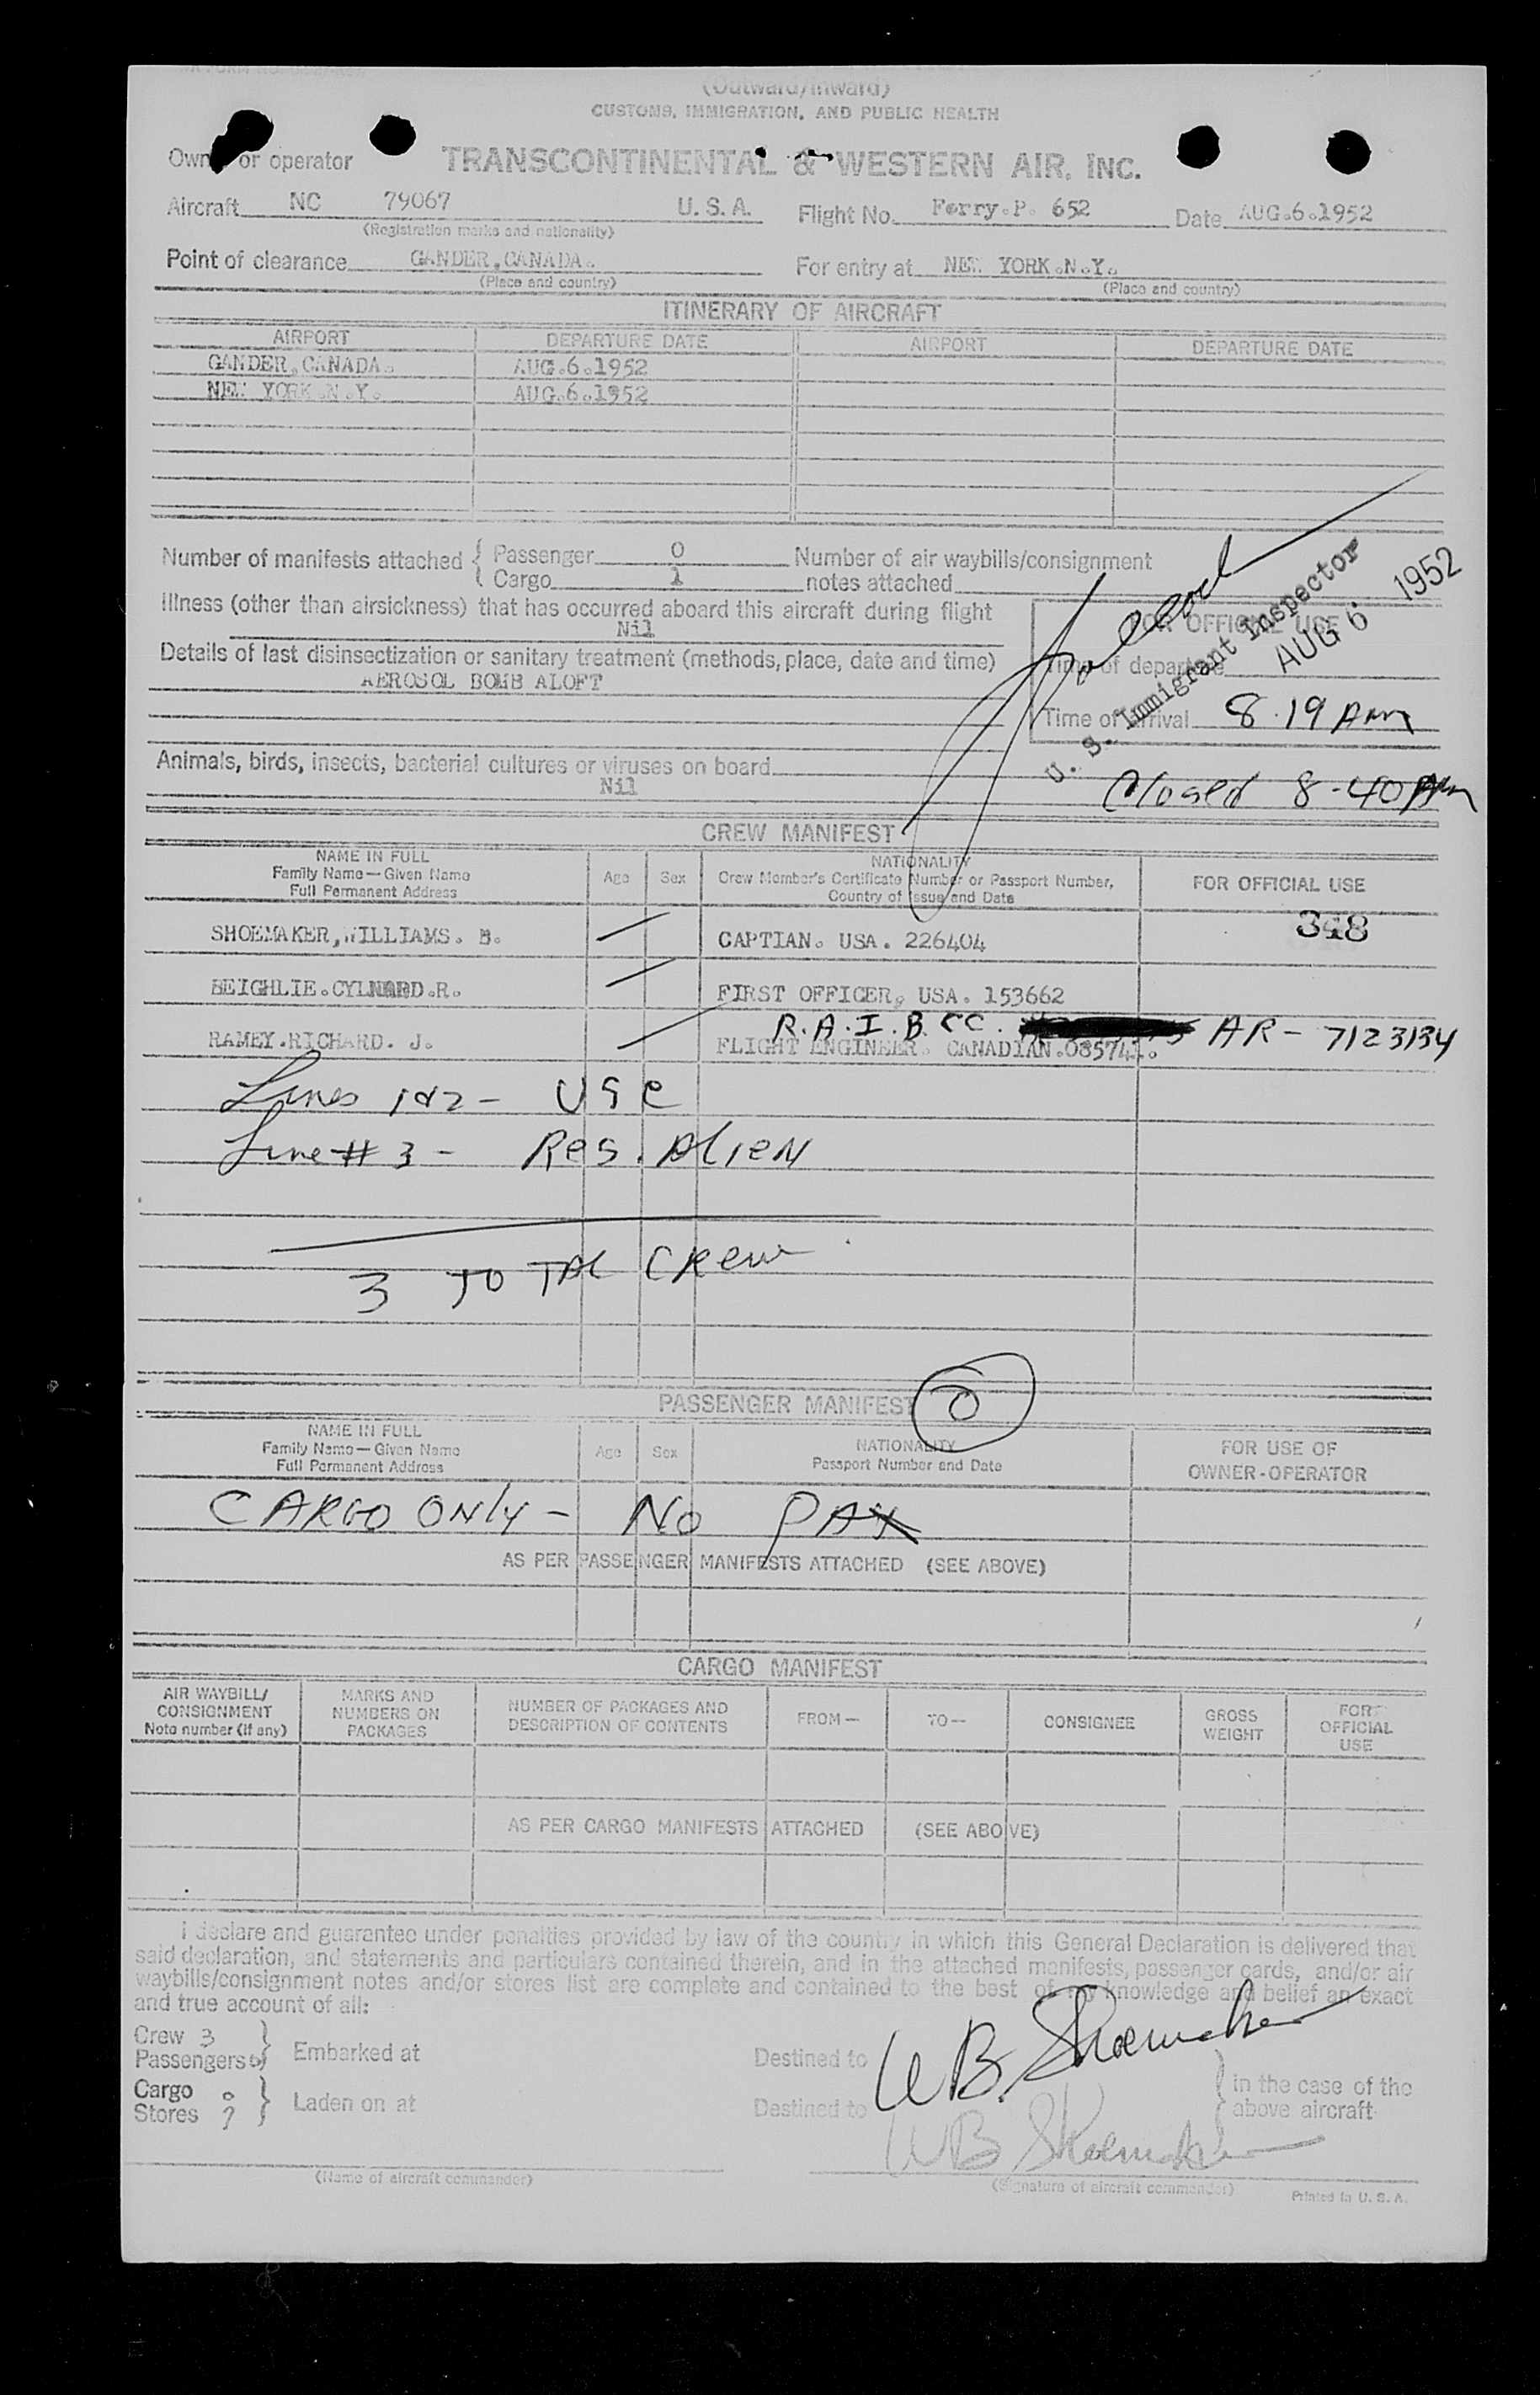 (Outward/Inward)
CUSTOMS, IMMIGRATION, AND PUBLIC HEALTH
Owner or operator TRANSCONTINENTAL & WESTERN AIR, INC.
Aircraft NC 79067 U.S.A. Flight No. Ferry.P. 652 Date AUG.6.1952
(Registration marks and nationality)
Point of clearance GANDER,CANADA. For entry at NEW YORK.N.Y.
(Place and country) (Place and country)
ITINERARY OF AIRCRAFT
AIRPORT DEPARTURE DATE AIRPORT DEPARTURE DATE
GANDER,CANADA. AUG.6.1952
NEW YORK.N.Y. AUG.6.1952
Number of manifests attached { Passenger 0 Number of air waybills/consignment
{ Cargo 1 notes attached
Illness (other than airsickness) that has occurred aboard this aircraft during flight
Nil
FOR OFFICIAL USE
U. S. Immigrant Inspector
AUG 6 1952
Details of last disinsectization or sanitary treatment (methods, place, date and time)
AEROSOL BOMB ALOFT
Time of departure
Time of arrival 8.19 Am
Animals, birds, insects, bacterial cultures or viruses on board
Nil
Closed 8-40 Am
CREW MANIFEST
NAME IN FULL
Family Name—Given Name
Full Permanent Address
Age Sex
NATIONALITY
Crew Member's Certificate Number or Passport Number,
Country of Issue and Date
FOR OFFICIAL USE
348
SHOEMAKER,WILLIAMS. B. CAPTIAN. USA. 226404
BEIGHLIE. R. FIRST OFFICER, USA. 153662
R.A.I.B.CC. AR-7123134
RAMEY.RICHARD. J. FLIGHT ENGINEER. CANADIAN.
Lines 1&2 - USC
Line # 3 - Res. Alien
3 TOTAL CREW
PASSENGER MANIFEST 0
NAME IN FULL
Family Name—Given Name
Full Permanent Address
Age Sex
NATIONALITY
Passport Number and Date
FOR USE OF
OWNER-OPERATOR
CARGO ONLY - NO PAX
AS PER PASSENGER MANIFESTS ATTACHED (SEE ABOVE)
CARGO MANIFEST
AIR WAYBILL/
CONSIGNMENT
Note number (if any)
MARKS AND
NUMBERS ON
PACKAGES
NUMBER OF PACKAGES AND
DESCRIPTION OF CONTENTS
FROM— TO— CONSIGNEE
GROSS
WEIGHT
FOR
OFFICIAL
USE
AS PER CARGO MANIFESTS ATTACHED (SEE ABOVE)
I declare and guarantee under penalties provided by law of the country in which this General Declaration is delivered that
said declaration, and statements and particulars contained therein, and in the attached manifests, passenger cards, and/or air
waybills/consignment notes and/or stores list are complete and contained to the best of my knowledge and belief an exact
and true account of all:
Crew 3
Passengers 0 } Embarked at Destined to
WB Shoemaker
Cargo
Stores } Laden on at Destined to } in the case of the
above aircraft
WB Shoemaker
(Name of aircraft commander) (Signature of aircraft commander)
Printed in U. S. A.